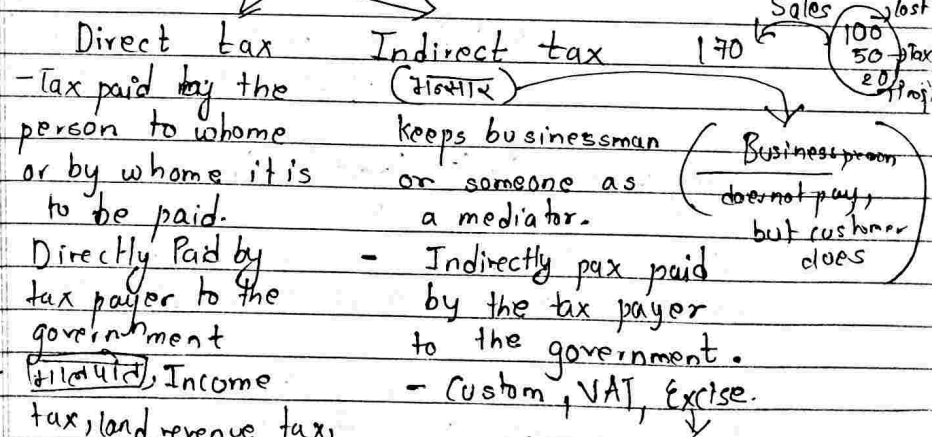 Direct tax
- Tax paid by the
person to whome
or by whome it is
to be paid.
Directly Paid by
tax payer to the
government
मालपोत, Income
tax, land revenue tax,
Indirect tax
(भन्सार)
keeps businessman
or someone as
a mediator.
- Indirectly pax paid
by the tax payer
to the government.
- Custom, VAT, Excise.
170
Sales
100
50 → Tax
20
Business person
does not pay,
but customer
does